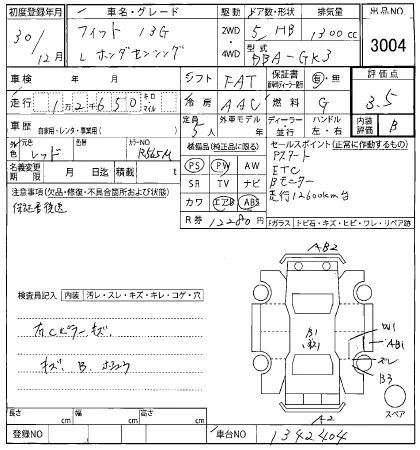 初度登録年月 車名・グレード 駆動 ドア数・形状 排気量 出品NO
30/12月 フィット 13G 2WD・4WD 5 HB 1300cc 3004
L ホンダセンシング 型式 DBA-GK3
車検 年 月 シフト FAT 保証書 有・無 評価点
走行 12650 キロ・マイル 冷房 AAC 燃料 G 3.5
車歴 自家用・レンタ・事業用( ) 定員 5人 外車モデル 年 ディーラー・並行 ハンドル 左・右 内装評価 B
外色 元色 レッド 色替 カラーNO R565M 装備品(純正品に限る) セールスポイント(正常に作動するもの)
名義変更期限 月 日迄 積載 t
PS PW AW
SR TV ナビ
カワ エアB ABS
R券 12280円
Pスタート
ETC
Bモニター
走行12600km台
注意事項(欠品・修復・不具合箇所および状態)
保証書後送
Fガラス トビ石・キズ・ヒビ・ワレ・リペア跡
検査員記入 内装 汚レ・スレ・キズ・キレ・コゲ・穴
右Cピラーキズ
キズ、B、
AB2
B1
W1
AB1
ズレ
B3
A2
スペア
長さ cm 幅 cm 高さ cm
登録NO 車台NO 1342404